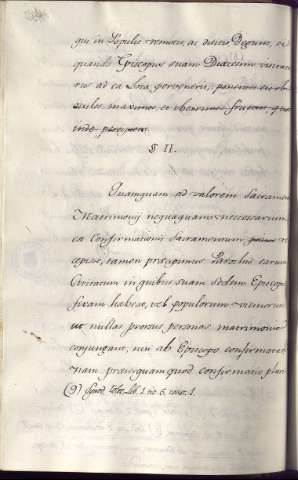 qui in Populis remotis, ac dissitis Degunt, et
quando Episcopus suam Diœcesim visitatu
rus ad ea loca pervenerit,
maximos, et uberrimos fructus, ex
inde percipient.
§ II.
Quamquam ad valorem Sacramenti
Matrimonij nequaquam necessarium
ea Confirmationis Sacramentum
cepisse, tamen præcipimus Parochis earum
Civitatum in quibus suam sedem Episcopi
fixam habent, vel populorum vicinorum
ut nullas prorsus personas matrimonio
conjungant, nisi ab Episcopo confirmatas
nam præterquam quod confirmatio plan
(9) Synod. Lib. 1. tit. 6. const. 1.